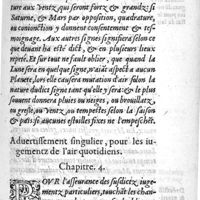 ture aux Ventz qui seront fortz & grandz: si
Saturne, & Mars par opposition, quadrature,
ou conionction y donnent consentement & tes-
moignage. Aux autres signes signifiera selon ce
que deuant ha esté dict, & en plusieurs lieux
repeté. Et si ne fault oblier, que quand la
Lune sera en quelque signe, n'aiãt aspect à aucun
Planete, lors elle causera mutation d'air selon la
nature dudict signe sans qu'elle y sera: & le plus
souuent donnera pluies ou neiges, ou brouillatz,
ou gresles, ou Ventz, ou tempestes selon la saison
& païs: si aucunes estoilles fixes ne l'empeschẽt.
Aduertissement singulier, pour les iu-
gementz de l'air quotidiens.
Chapitre. 4.
POVR l'asseurance des susdictz iuge-
mentz particuliers, touchãt les chan-